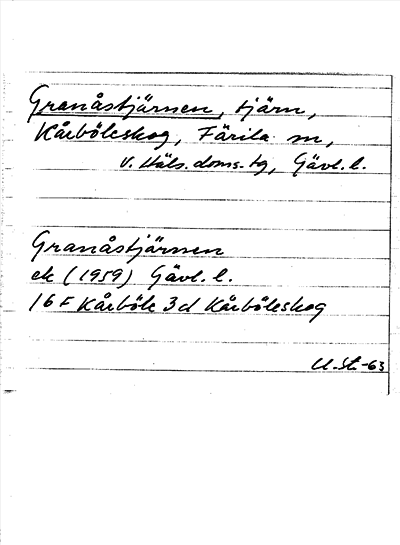 Granåstjärnen, tjärn,
Kårböleskog, Färila sn,
V. Häls. doms. tg, Gävl. l.
Granåstjärnen
ek (1959) Gävl. l.
16 F Kårböle 3d Kårböleskog
U. St. -63